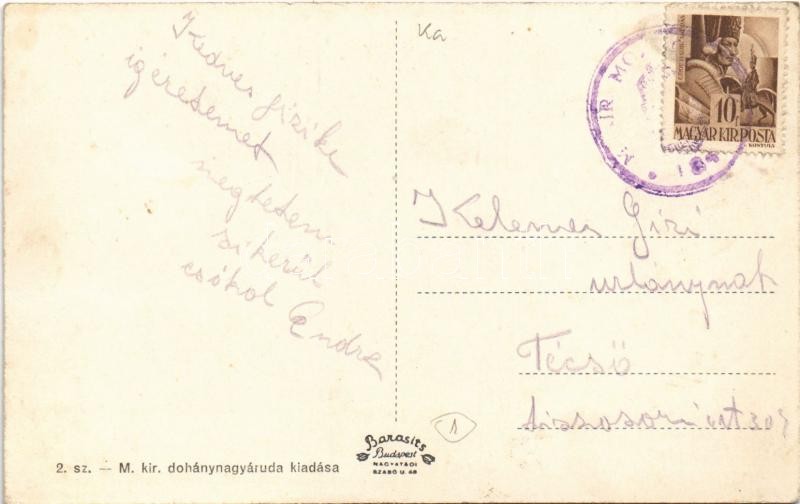 Ka
Kedves Gizike
igéretemet
megtetem.
sikerült
csókol Endre
10f
MAGYAR KIR. POSTA
Kelemen Gizi
urlánynak
Técső
2. sz. — M. kir. dohánynagyáruda kiadása
Barasits
Budapest
NAGYATÁDI
SZABÓ U. 48
1